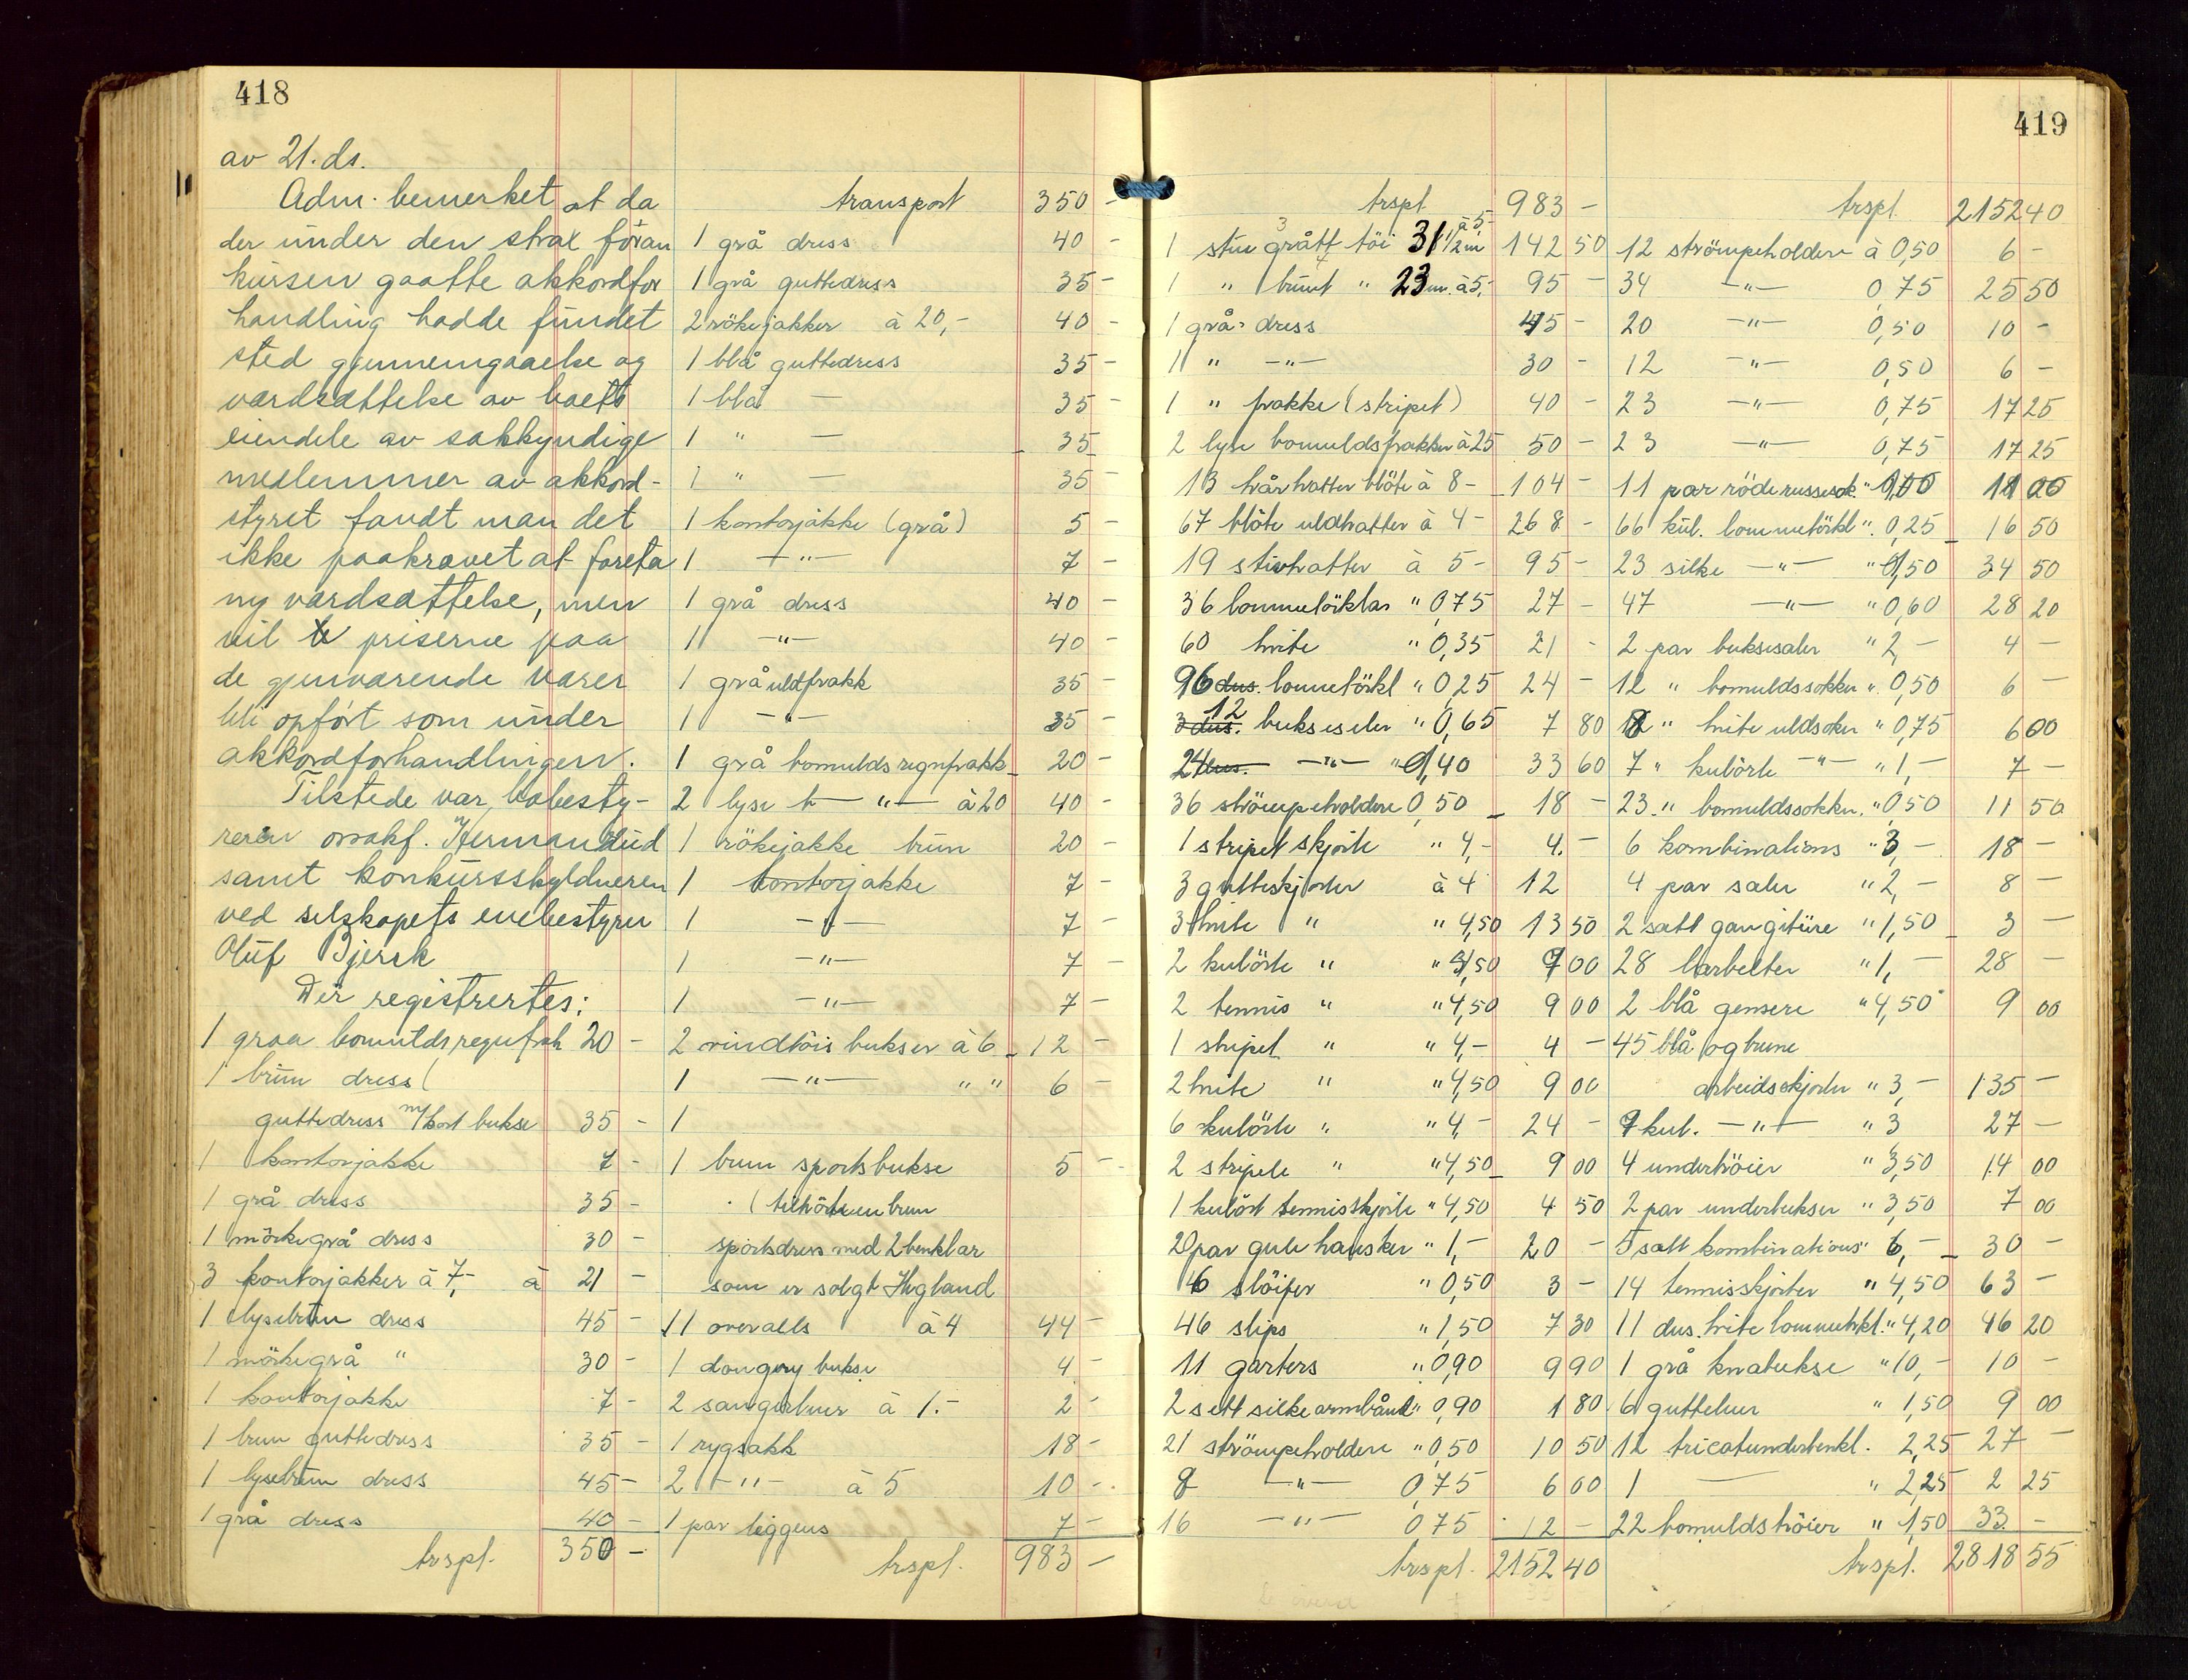 418
av 21. ds.
Adm. bemerket at da
der under den strax foran
kursen gaatte akkordfor
handling hadde fundet
sted gjennemgaaelse og
værdsættelse av boets
eiendele av sakkyndige
medlemmer av akkord-
styret fandt man det
ikke paakrævet at foreta
ny værdsættelse, men
vil priserne paa
de gjenværende varer
bli opført som under
akkordforhandlingen.
Tilstede var bobesty-
reren o.r.sakf. Hermanrud
samt konkursskyldneren
ved selskapets enebestyrer
Oluf Bjersk
Der registrertes:
1 graa bomulds regnfrak 20 -
1 brun dress (
guttedress m/kort bukse 35 -
1 kontorjakke 7 -
1 grå dress 35 -
1 mörkegrå dress 30 -
3 kontorjakker à 7,- à 21 -
1 lysebrun dress 45 -
1 mörkegrå " 30 -
1 kontorjakke 7 -
1 brun guttedress 35 -
1 lysebrun dress 45 -
1 grå dress 40 -
trspt. 350 -
transport 350 -
1 grå dress 40 -
1 grå guttedress 35 -
2 rökejakker à 20,- 40 -
1 blå guttedress 35 -
1 blå — 35 -
1 " — 35 -
1 " — 35 -
1 kontorjakke (grå) 5 -
1 -"- 7 -
1 grå dress 40 -
1 -"- 40 -
1 grå uldfrakk 35 -
1 -"- 35 -
1 grå bomulds regnfrakk 20 -
2 lyse b -"- à 20 40 -
1 rökejakke brun 20 -
1 kontorjakke 7 -
1 -"- 7 -
1 -"- 7 -
1 -"- 7 -
2 vindtöis bukser à 6 12 -
1 -"- " " 6 -
1
1 brun sportsbukse 5 -
(tilhörte en brun
sportsdress med 2 benklær
som er solgt Hegland
11 overalls à 4 44 -
1 dongery bukse 4 -
2 sangerluer à 1.- 2 -
1 rygsakk 18 -
2 -"- à 5 10 -
1 par leggens 7 -
trspt. 983 -
419
trspt 983 -
1 stu grått töi 31 1/2 m à 5- 142 50
1 " brunt " 23 m. à 5,- 95 -
1 grå dress 45 -
1 " -"- 30 -
1 " frakke (stripet) 40 -
2 lyse bomuldsfrakker à 25 50 -
13 hårhatter blöte à 8- 104 -
67 blöte uldhatter à 4- 268 -
19 stivhatter à 5- 95 -
36 lommetörklær " 0,75 27 -
60 hvite " 0,35 21 -
96 dus. lommetörkl " 0,25 24 -
12 dus. bukseseler " 0,65 7 80
24 dus. -"- " 1,40 33 60
36 strömpeholdere 0,50 18 -
1 stripet skjorte " 4,- 4 -
3 gutteskjorter à 4 12
3 hvite " " 4,50 13 50
2 kulörte " " 4,50 9 00
2 tennis " " 4,50 9 00
1 stripet " " 4,- 4 -
2 hvite " " 4,50 9 00
6 kulörte " " 4,- 24 -
2 stripete " " 4,50 9 00
1 kulört tennisskjorte " 4,50 4 50
20 par gule hansker " 1,- 20 -
6 slöifer " 0,50 3 -
46 slips " 1,50 7 30
11 garters " 0,90 9 90
2 sett silke armbånd " 0,90 1 80
21 strömpeholdere " 0,50 10 50
8 -"- 0,75 6 00
16 -"- 0,75 12 -
trspt. 2152 40
trspt 2152 40
12 strömpeholdere à 0,50 6 -
34 -"- 0,75 25 50
20 -"- 0,50 10 -
12 -"- 0,50 6 -
23 -"- 0,75 17 25
23 -"- 0,75 17 25
11 par röde russesok. " 1,00 11 00
66 kul. lommetörkl " 0,25 16 50
23 silke -"- " 1,50 34 50
47 -"- " 0,60 28 20
2 par buksesæler " 2,- 4 -
12 " bomuldssokker " 0,50 6 -
8 " hvite uldsoker " 0,75 6 00
7 " kulörte -"- " 1,- 7 -
23 " bomuldssokker. " 0,50 11 50
6 kombinations " 3,- 18 -
4 par sæler " 2,- 8 -
2 satt gangitüre " 1,50 3 -
28 barbelter " 1,- 28 -
2 blå gensere " 4,50 9 00
45 blå og brune
arbeidsskjorter " 3,- 135 -
9 kul. -"- " 3 27 -
4 undertröier " 3,50 14 00
2 par underbukser " 3,50 7 00
5 satt kombinations " 6,- 30 -
14 tennisskjorter " 4,50 63 -
11 dus. hvite lommetrkl. " 4,20 46 20
1 grå knæbukse " 10,- 10 -
6 gutteluer " 1,50 9 00
12 tricotunderbenkl. 2,25 27 -
1 — " 2,25 2 25
22 bomuldströier " 1,50 33 -
trspt. 2818 55